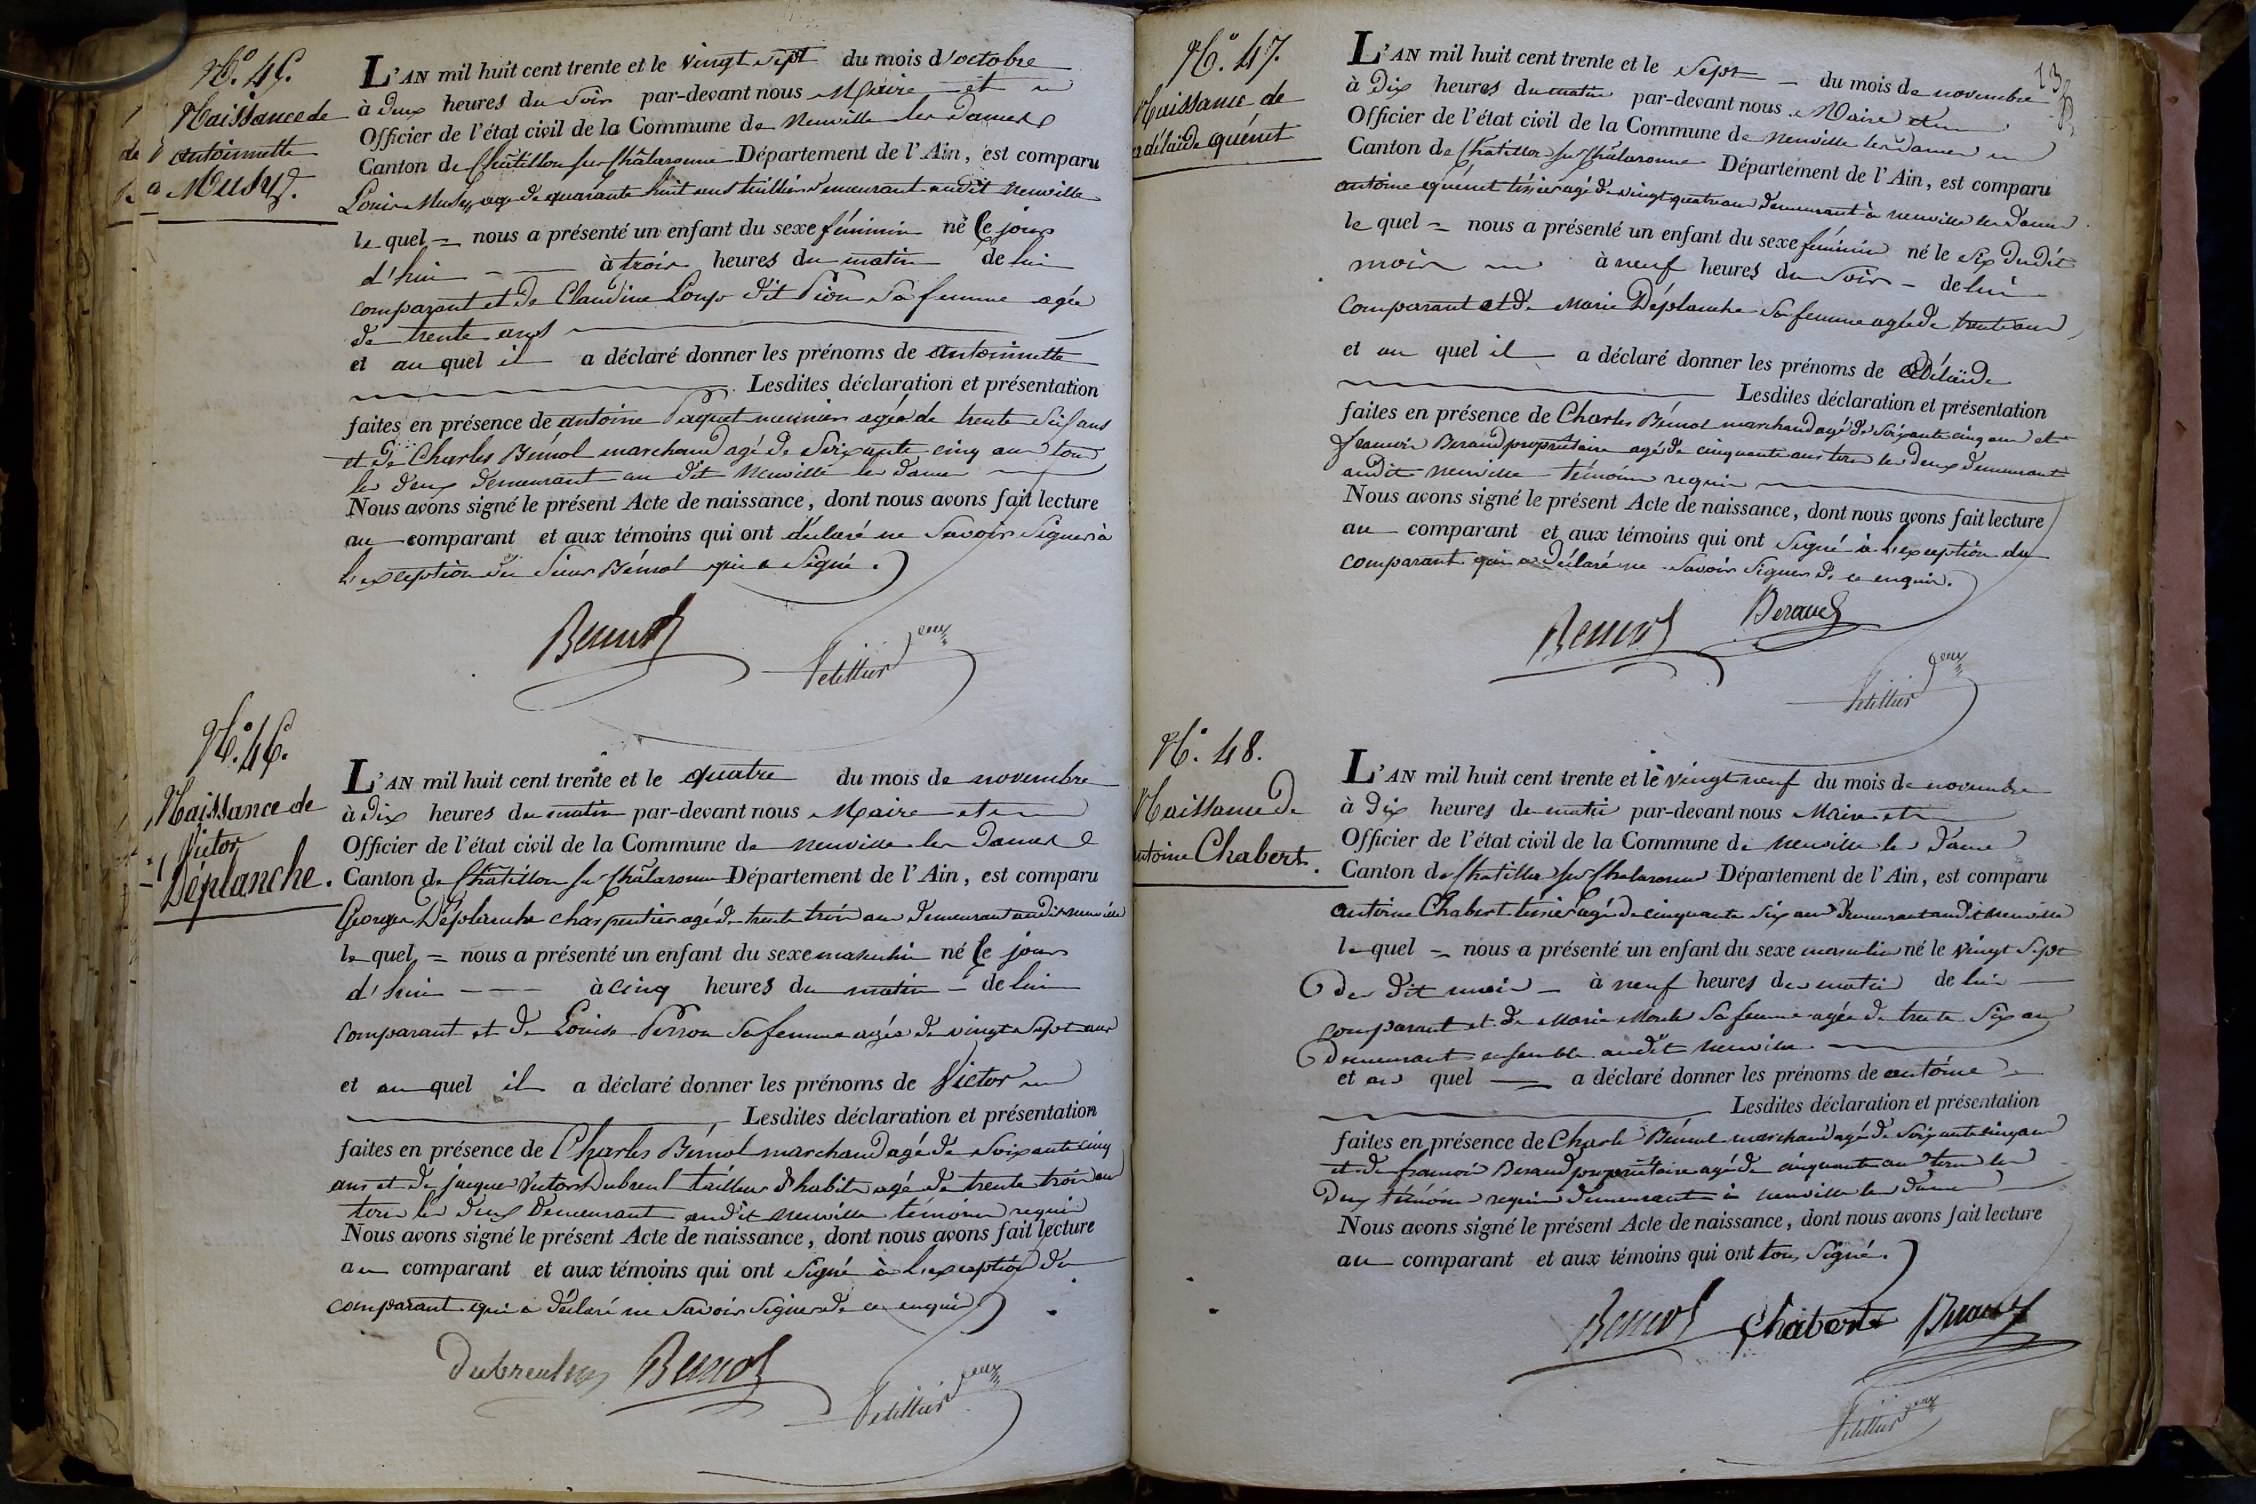 N.° 45.
Naissance de
antoinette
Musy.
L'AN mil huit cent trente et le vingt sept du mois d'octobre
à deux heures du soir par-devant nous Maire et
Officier de l'état civil de la Commune de Neuville les Dames
Canton de Châtillon sur Châlaronne Département de l'Ain, est comparu
Louis Musy agé de quarante huit ans demeurant audit neuville
le quel = nous a présenté un enfant du sexe féminin né ce jour
d'hui à trois heures du matin de lui
comparant et de Claudine Loup dit Pion sa femme agée
de trente ans
et au quel il a déclaré donner les prénoms de antoinette
Lesdites déclaration et présentation
faites en présence de antoine Paquet meunier agée de trente six ans
et de Charles Bémol marchand agé de soixante cinq ans tous
les deux demeurant au dit Neuville les dames
Nous avons signé le présent Acte de naissance, dont nous avons fait lecture
au comparant et aux témoins qui ont déclaré ne savoir signer à
l'exception du sieur Bémol qui a signé.
Bemol
N.° 46.
Naissance de
Victor
Déplanche.
L'AN mil huit cent trente et le quatre du mois de novembre
à dix heures du matin par-devant nous Maire et
Officier de l'état civil de la Commune de neuville les Dames
Canton de Châtillon sur Châlaronne Département de l'Ain, est comparu
George Déplanche charpentier agé de trente trois ans demeurant audit neuville
le quel = nous a présenté un enfant du sexe masculin né ce jour
d'hui à cinq heures du matin - de lui
comparant et de Louise Perron sa femme agée de vingt sept ans
et au quel il a déclaré donner les prénoms de Victor
Lesdites déclaration et présentation
faites en présence de Charles Bémol marchand agé de soixante cinq
ans et de jacque Victor Dubreul tailleur d'habits agé de trente trois ans
tous les deux demeurant audit neuville témoins requis
Nous avons signé le présent Acte de naissance, dont nous avons fait lecture
au comparant et aux témoins qui ont signé à l'exception du
comparant qui a déclaré ne savoir signer de ce enquis
Dubreul Bemol
N.° 47.
Naissance de
adélaïde quénet
L'AN mil huit cent trente et le sept du mois de novembre
à dix heures du matin par-devant nous Maire et
Officier de l'état civil de la Commune de neuville les Dames
Canton de Châtillon sur Châlaronne Département de l'Ain, est comparu
antoine quénet tissier agé de vingt quatre ans demeurant à neuville les Dames
le quel = nous a présenté un enfant du sexe féminin né le six dudit
mois à neuf heures du soir - de lui
comparant et de Marie Déplanche sa femme agée de trente ans
et au quel il a déclaré donner les prénoms de adélaïde
Lesdites déclaration et présentation
faites en présence de Charles Bémol marchand agé de soixante cinq ans et
françois Beraud propriétaire agé de cinquante ans tous les deux demeurant
audit neuville témoins requis
Nous avons signé le présent Acte de naissance, dont nous avons fait lecture
au comparant et aux témoins qui ont signé à l'exception du
comparant qui a déclaré ne savoir signer de ce enquis.
Bemol Beraud
N.° 48.
Naissance de
antoine Chabert.
L'AN mil huit cent trente et le vingt neuf du mois de novembre
à dix heures du matin par-devant nous Maire et
Officier de l'état civil de la Commune de neuville les Dames
Canton de Châtillon sur Chalaronne Département de l'Ain, est comparu
antoine Chabert tissier agé de cinquante six ans demeurant audit neuville
le quel = nous a présenté un enfant du sexe masculin né le vingt sept
du dit mois - à neuf heures du matin de lui
comparant et de Marie sa femme agée de trente six ans
demeurant ensemble audit neuville
et au quel a déclaré donner les prénoms de antoine
Lesdites déclaration et présentation
faites en présence de Charle Bémol marchand agé de soixante cinq ans
et de françois Beraud propriétaire agé de cinquante ans tous les
deux témoins requis demeurant à neuville les dames
Nous avons signé le présent Acte de naissance, dont nous avons fait lecture
au comparant et aux témoins qui ont tous signé.
Bemol Chabert Beraud